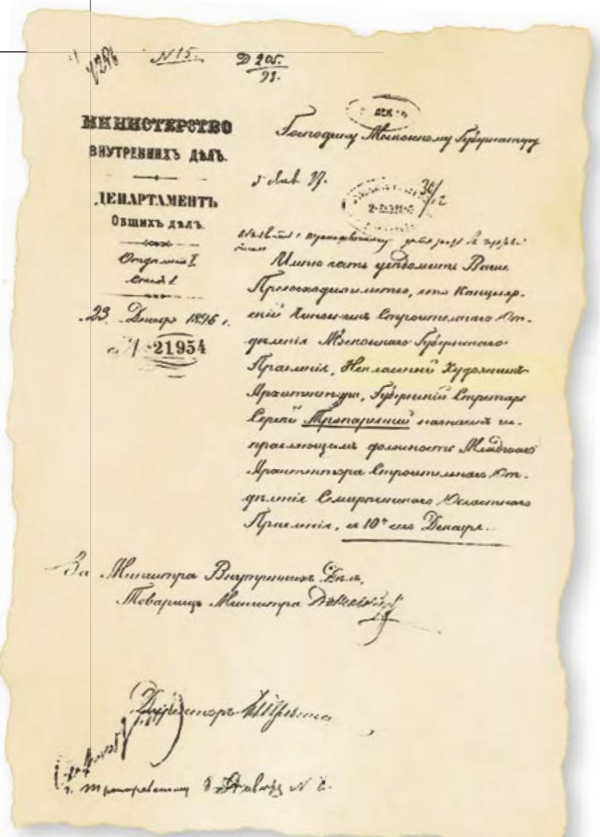 4286
N 15.
Д 205.
93.
МИНИСТЕРСТВО
ВНУТРЕННИХЪ ДѢЛЪ.
ДЕПАРТАМЕНТЪ
ОБЩИХЪ ДѢЛЪ.
Отдѣленіе I
23 Декабря 1896 г.
21954
Господину Московскому Губернатору
5 Янв. 97.
Имѣю честь увѣдомить Ваше
Превосходительство, что Канцеляр-
скій Чиновникъ Строительнаго От-
дѣленія Московскаго Губернскаго
Правленія, Неклассный Художникъ
Архитектуры, Губернскій Секретарь
Сергѣй Тропаревскій назначенъ ис-
правляющимъ должность Младшаго
Архитектора Строительнаго От-
дѣленія Областнаго
Правленія, съ 10го сего Декабря.
За Министра Внутреннихъ Дѣлъ,
Товарищъ Министра
Директоръ